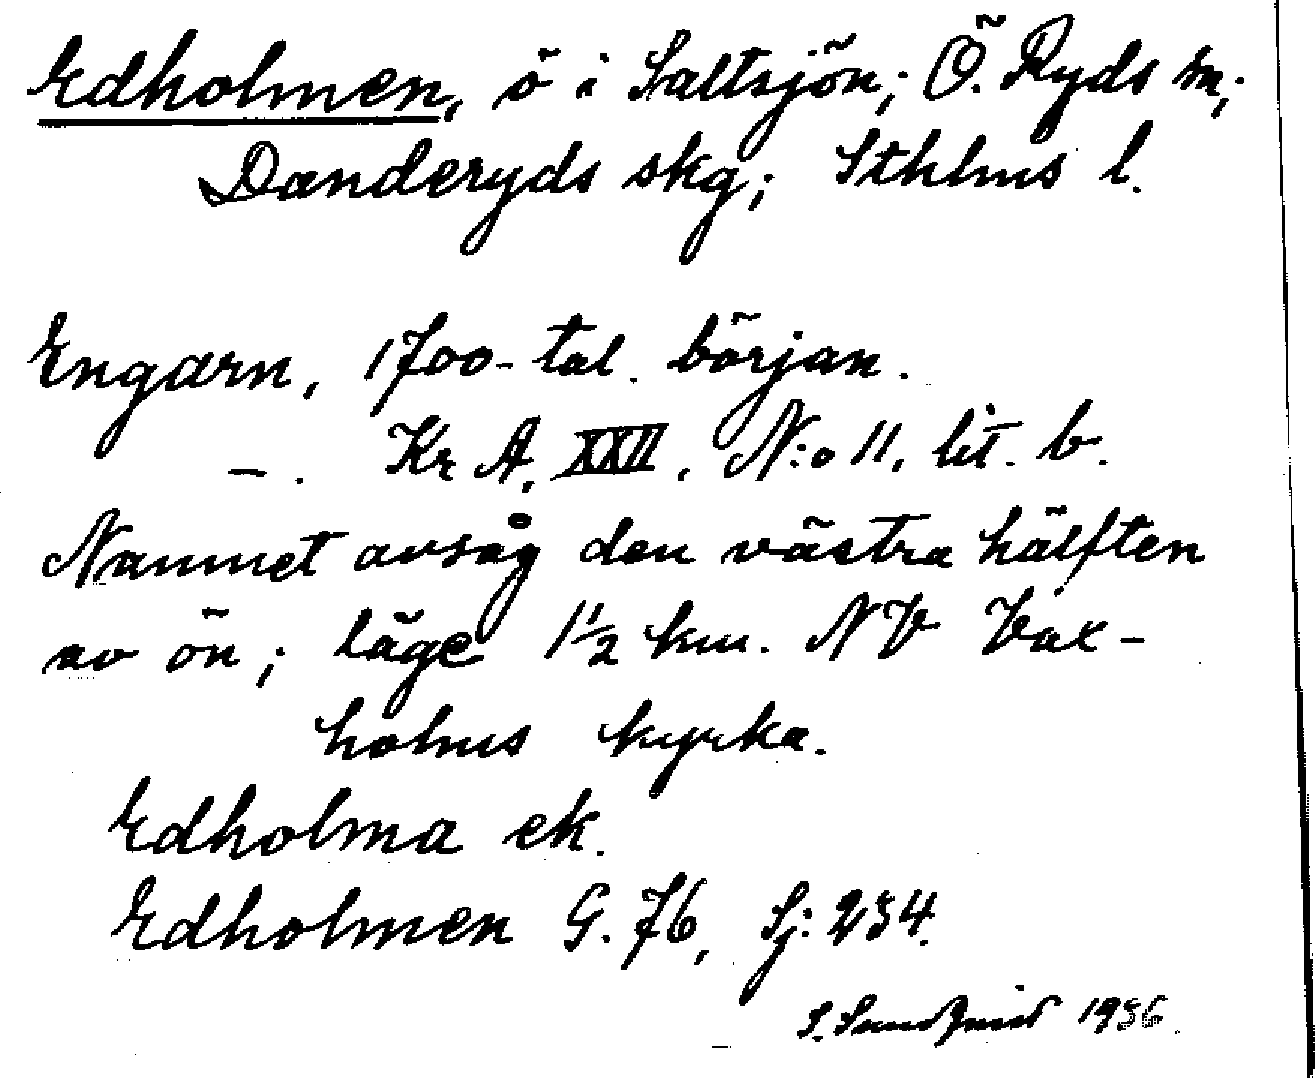 Edholmen, ö i Saltsjön; Ö. Ryds sn;
Danderyds skg; Sthlms l.
Engarn, 1700-tal. början.
—. Kr A, XXII, N:o 11, lit. b.
Namnet avsåg den västra hälften
av ön; läge 1 1/2 km. NV Vax-
holms kyrka.
Edholma ek.
Edholmen G. 76, Sj: 234.
S. Sundqvist 1936.